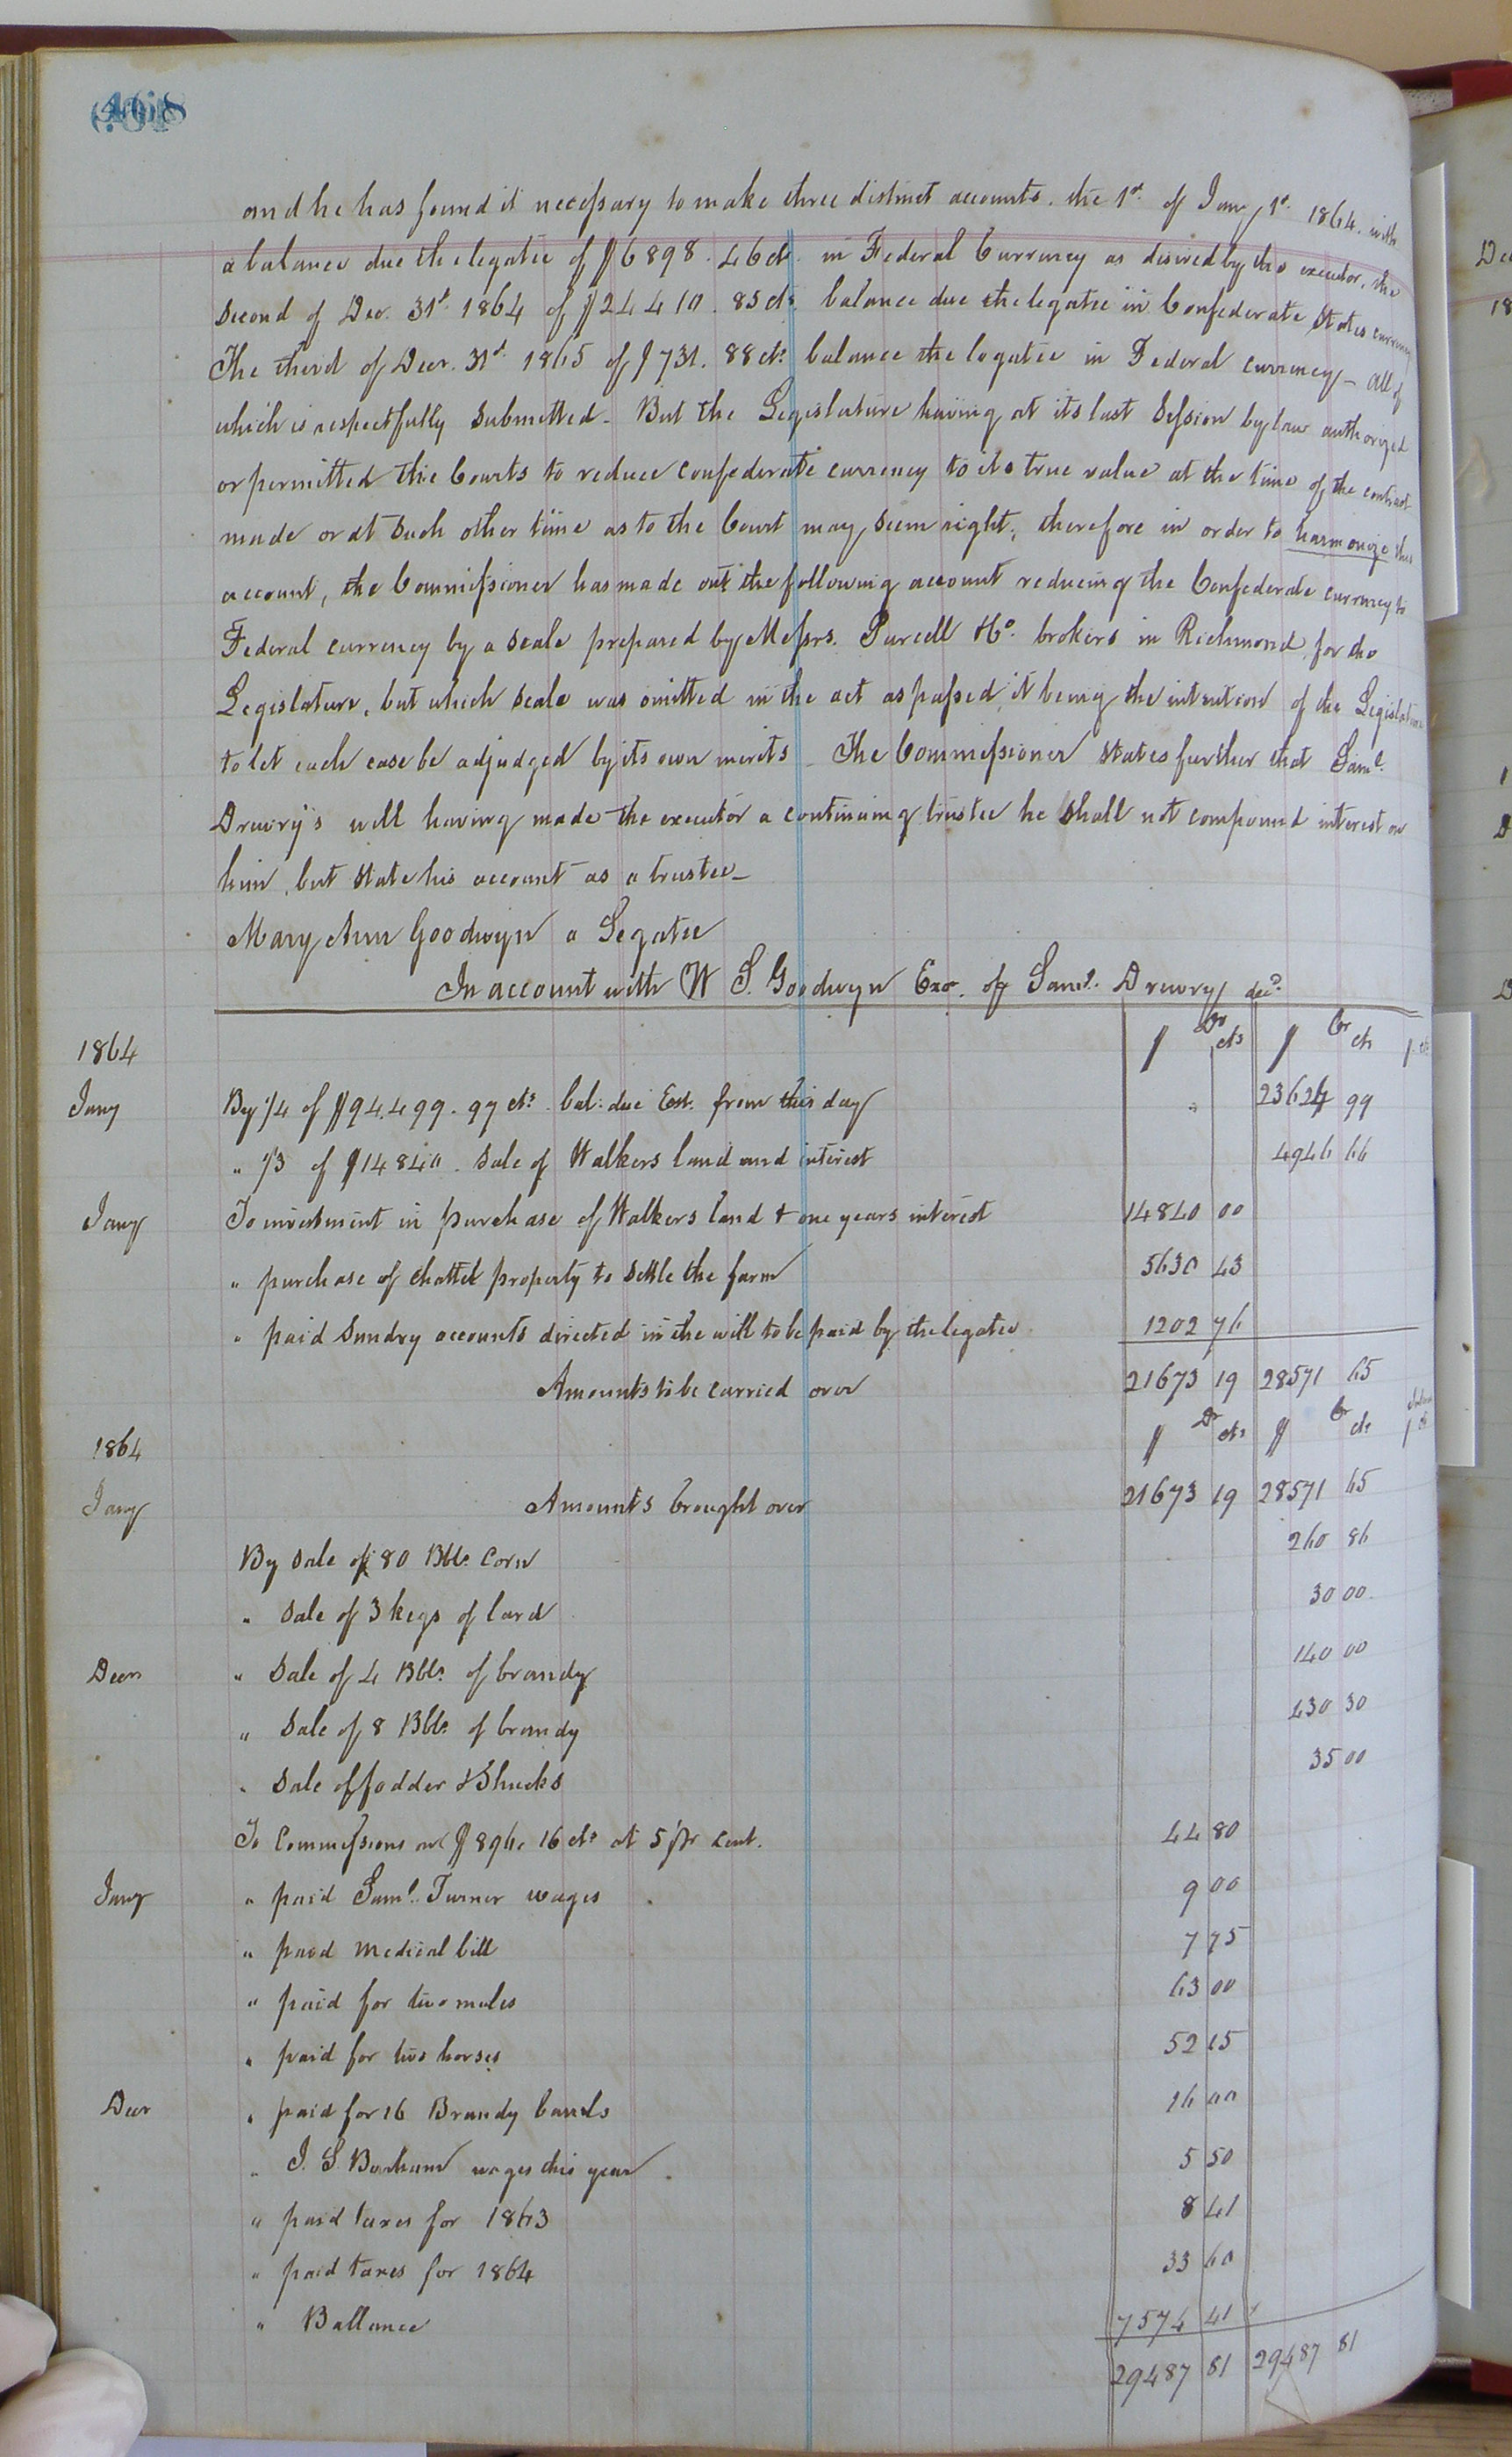 468
and he has found it necessary to make three distinct accounts. the 1st. of Jany 1st. 1864. with
a balance due the legatee of $6898.46 cts. in Federal Currency as desired by the executor, the
second of Dec. 31st. 1864 of $24410.85 cts. balance due the legatee in Confederate States currency
The third of Decr. 31st. 1865 of $731.88 cts. balance the legatee in Federal currency - All of
which is respectfully submitted - But the Legislature having at its last Session by law authorized
or permitted the Courts to reduce Confederate currency to its true value at the time of the contract
made or at such other time as to the Court may seem right; therefore in order to harmonize this
account, the Commissioner has made out the following account reducing the Confederate currency to
Federal currency by a scale prepared by Messrs. Purcell & Co. brokers in Richmond for the
Legislature, but which scale was omitted in the act as passed it being the intention of the Legislature
to let each case be adjudged by its own merits - The Commissioner states further that Saml.
Drewry's will having made the executor a continuing trustee he shall not compound interest on
him, but state his account as a trustee -
Mary Ann Goodwyn a Legatee
In account with W S. Goodwyn Exor. of Saml. Drewry decd.
1864 $ Dr cts $ Cr cts
Jany By 1/4 of $94.499.97 cts. bal: due Est. from this day 23624 99
" 1/3 of $14840. Sale of Walkers land and interest 4946 66
Jany To investment in purchase of Walkers land & one years interest 14840 00
" purchase of chattel property to settle the farm 5630 43
" paid Sundry accounts directed in the will to be paid by the legatee 1202 76
Amounts to be carried over 21673 19 28571 65
1864 $ Dr cts $ Cr cts
Jany Amounts brought over 21673 19 28571 65
By sale of 80 Bbls. Corn 260 86
" Sale of 3 kegs of lard 30 00
Decr " Sale of 4 Bbls. of brandy 140 00
" Sale of 8 Bbls. of brandy 430 30
" Sale of fodder & Shucks 35 00
To Commissions on $896.16 cts at 5 pr cent. 44 80
Jany " paid Saml. Turner wages 9 00
" paid medical bill 7 75
" paid for two mules 63 00
" paid for two horses 52 15
Decr " paid for 16 Brandy barrels 16 00
" J. S. Barham wages this year 5 50
" paid taxes for 1863 8 41
" paid taxes for 1864 33 60
" Ballance 7574 41
29487 81 29487 81